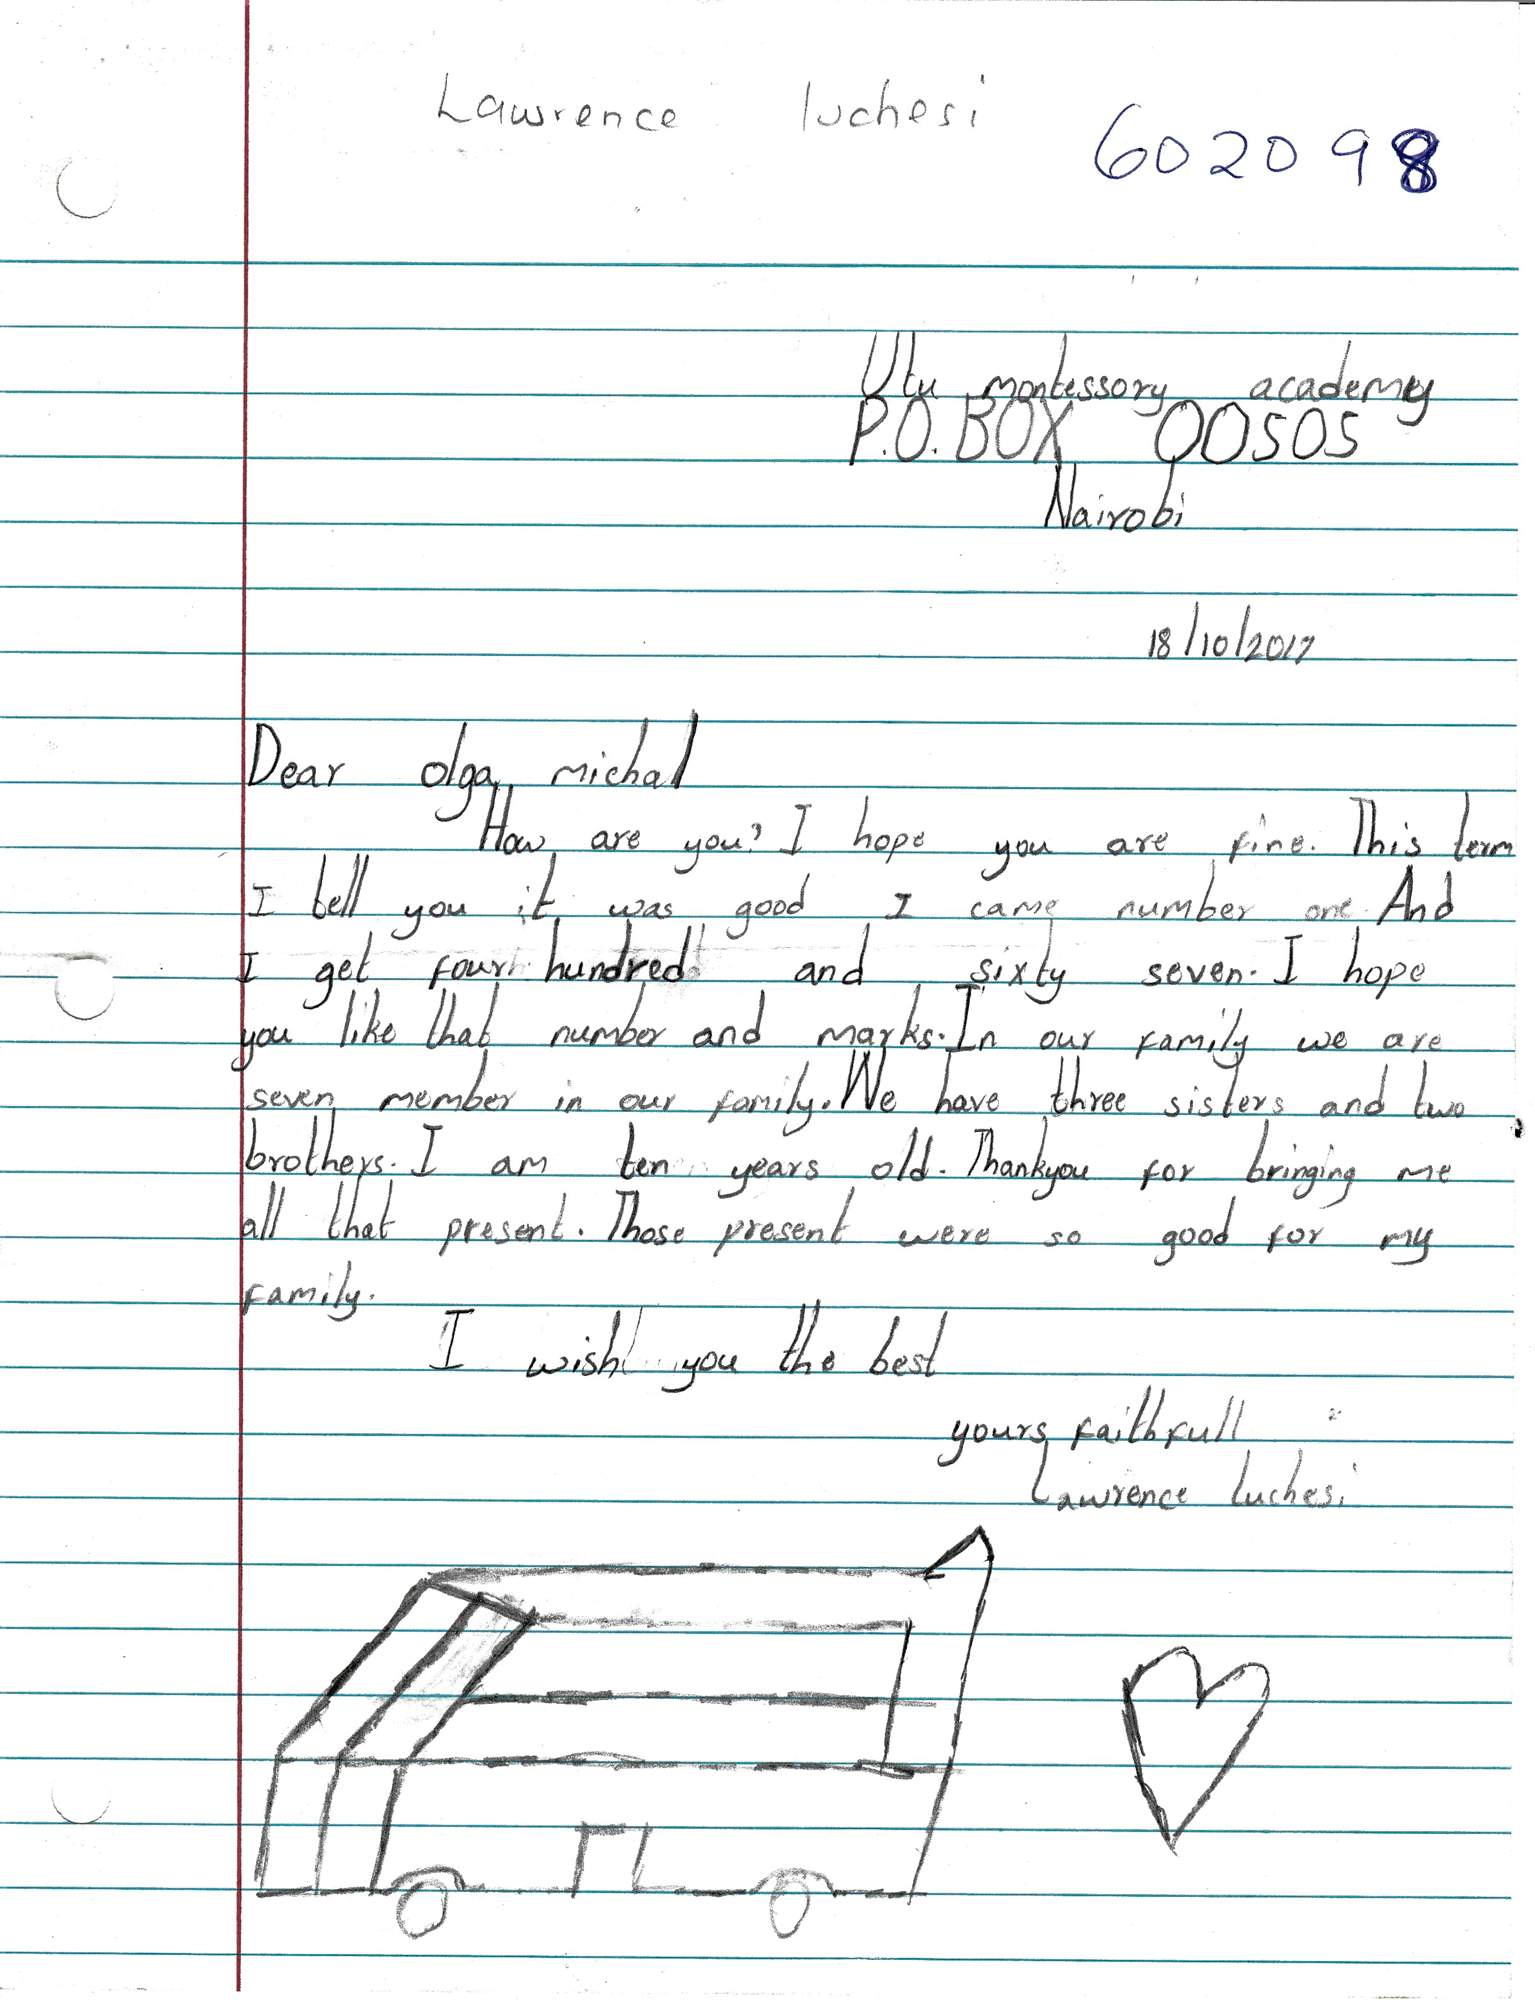 Lawrence luchesi
602098
Utu montessory academy
P.O.BOX 00505
Nairobi
18/10/2017
Dear olga michal
How are you? I hope you are fine. This term
I tell you it was good I came number one. And
I get four hundred and sixty seven. I hope
you like that number and marks. In our family we are
seven member in our family. We have three sisters and two
brothers. I am ten years old. Thankyou for bringing me
all that present. Those present were so good for my
family.
I wish you the best
yours faithfull
Lawrence luchesi